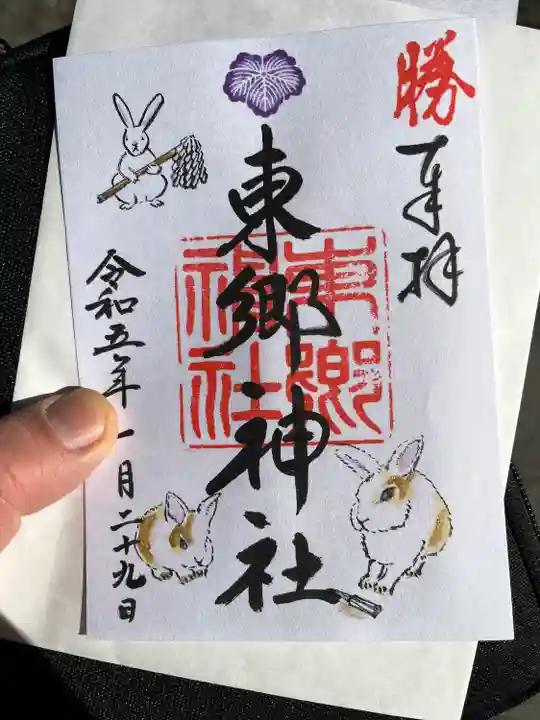 勝
奉拝
東郷神社
東郷
神社
令和五年一月二十九日